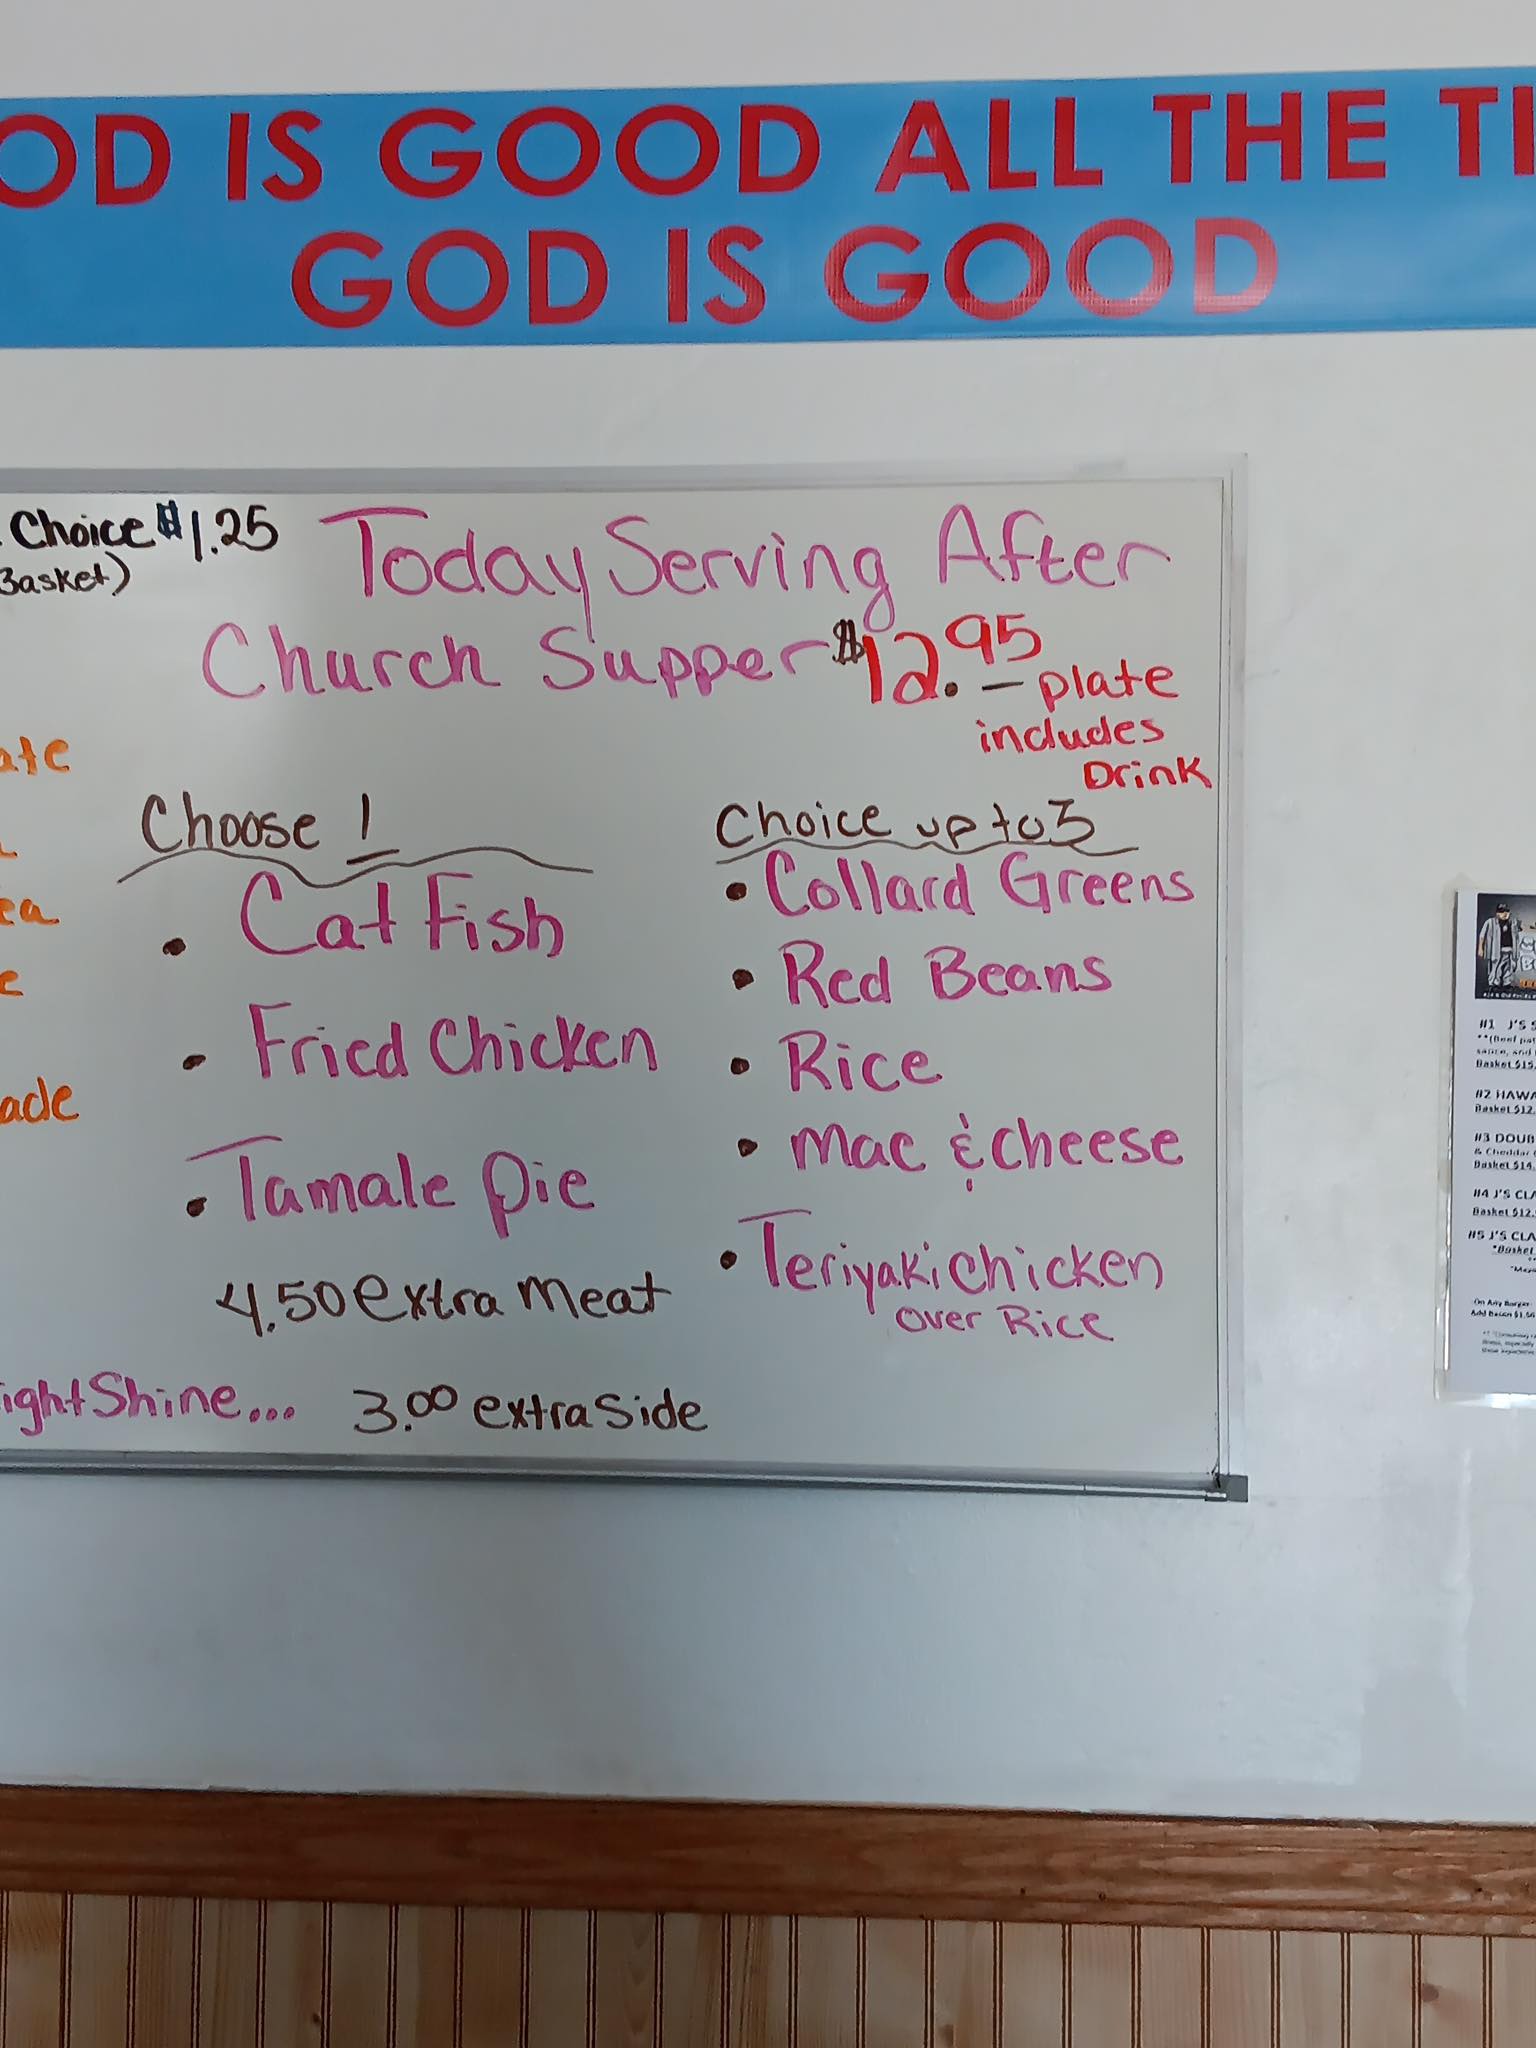 OD IS GOOD ALL THE TI
GOD IS GOOD
Choice $1.25
Basket)
Today Serving After
Church Supper $12.95 plate
includes
Drink
ate
ea
ade
Choose 1
• Cat Fish
• Fried Chicken
• Tamale Pie
4.50 extra meat
Choice up to 3
• Collard Greens
• Red Beans
• Rice
• Mac & Cheese
• Teriyaki Chicken
over Rice
ight Shine...
3.00 extra side
#1 J'S
Basket $15.
#2 HAWA
Basket $12.
#3 DOUB
& Cheddar
Basket $14.
#4 J'S CLA
Basket $12.
#5 J'S CLA
"Basket
On Any Burger
Add Bacon $1.50